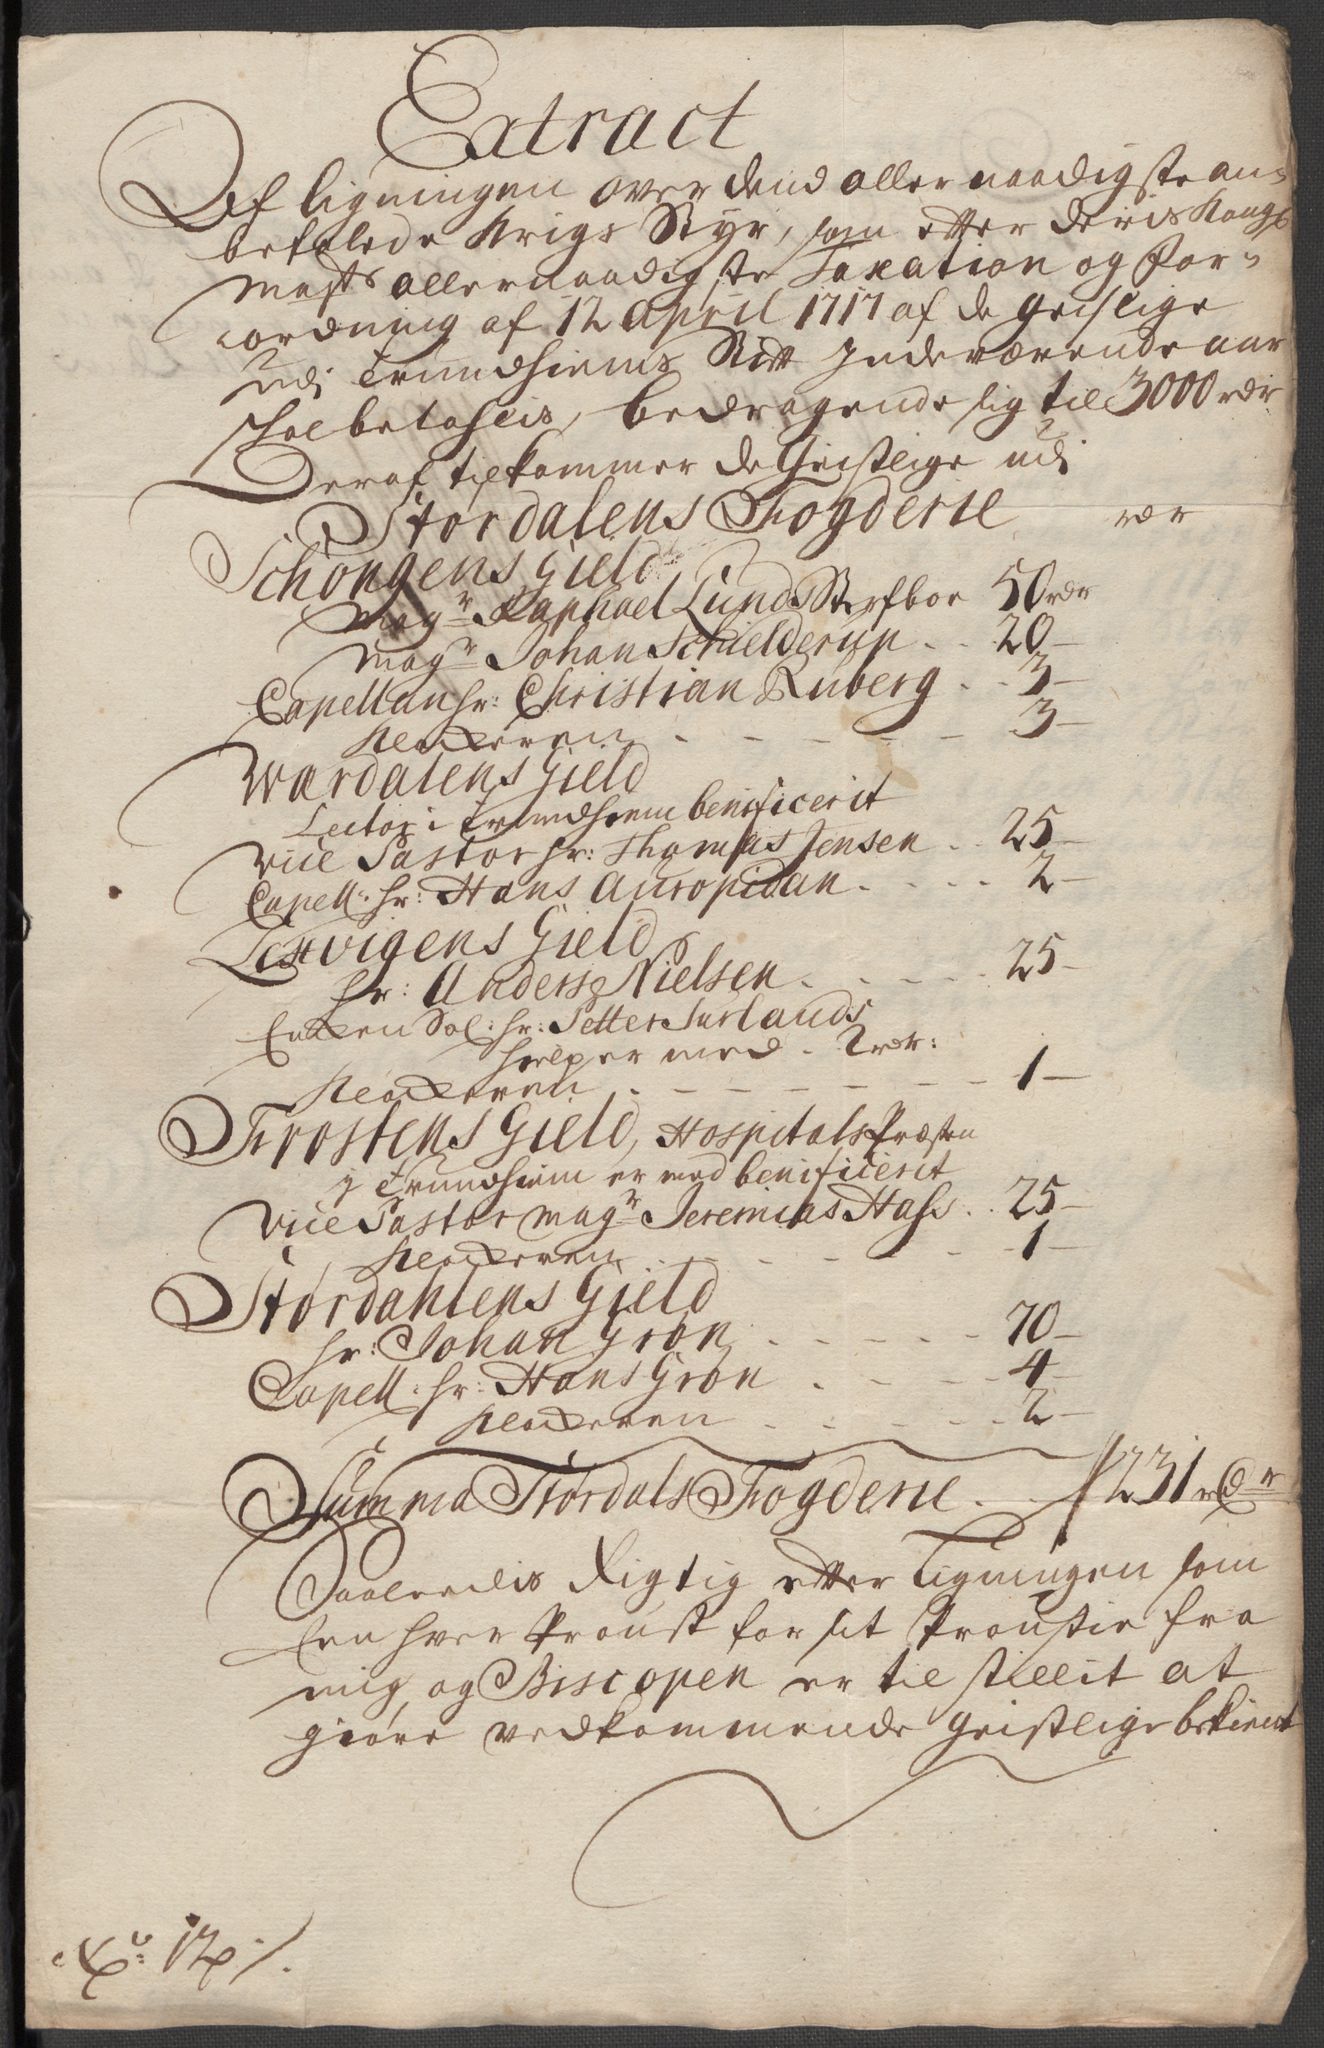 Extract
Af ligningen over dend aller naadigste an-
befalede Krigs Styr, som etter Deris Kongl
Maj:ts allernaadigste Taxation og For-
ordning af 12 April 1717 af de geistlige
udj Trundhiems Stift Indeværende aar
skal betahles, bedragende sig til 3000 rdr
Deraf tilkommer de Geistlige udj
Størdalens Fogderie rdr
Schöngens Gield
Mag:r Raphael Lunds Sterfboe 50 rdr
Mag:r Johan Schielderup . . 20 -
Capellan hr: Christian Ruberg . . 3 -
Klockeren - - - - - 3 -
Wærdalens Gield
Lector i Trundhiem benificerit
vice Pastor hr: Thomas Jensen . . 25 -
Capell: hr: Hans Auropidan . . . . 2 -
Lexvigens Gield
hr: Anders Nielsen . . . . . 25 -
Encken Sal: hr: Petter Jurlands
hielper med - 2 rdr:
Klockeren - - - - - - 1 -
Frostens Gield, Hospitals Præsten
j Trundhiem er med benificerit
vice Pastor Mag:r Jeremias Hass . . 25 -
Klockeren . . - - - - - 1 -
Størdahlens Gield
hr: Johan Grøn . . . . . 70 -
Capell: hr: Hans Grøn . . . . 4 -
Klockeren . . . . . 2 -
Summa Størdals Fogderie . . 231 rdr
Saaledis Rigtig etter Ligningen som
Een hver Proust for sit Proustie fra
mig og Biscopen er tilstillet at
giøre vedkommende geistlige bekient
No: 12 ./.